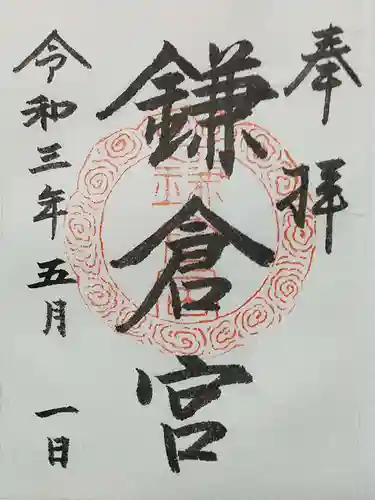 奉拝
鎌倉宮
令和三年五月一日